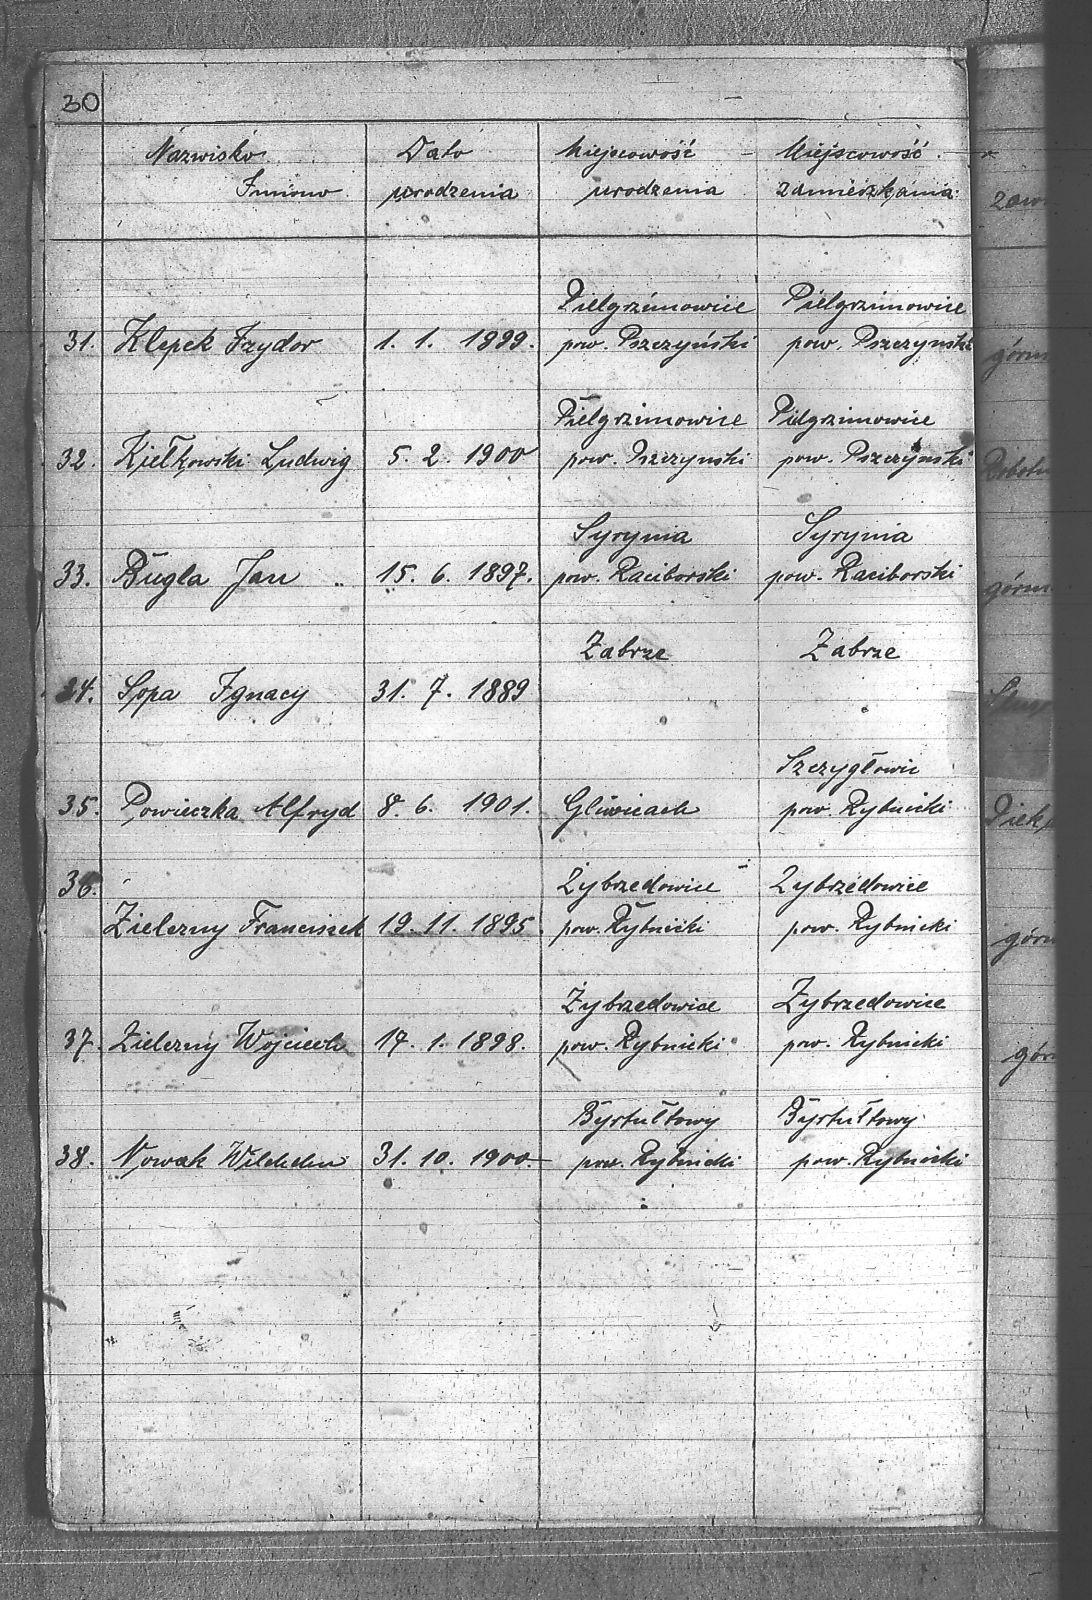 30
Nazwisko Data Miejscowość Miejscowość
Imiono urodzenia urodzenia zamieszkania
Pielgrzimowice Pielgrzimowice
31. Klepek Izydor 1. 1. 1899. pow. Pszczyński pow. Pszczynski
Pielgrzimowice Pielgrzimowice
32. Kiełkowski Ludwig 5. 2. 1900 pow. Pszczynski pow. Pszczyński
Syrynia Syrynia
33. Bugla Jan 15. 6. 1897. pow. Raciborski pow. Raciborski
Zabrze Zabrze
34. Sopa Ignacy 31. 7. 1889
Szczygłowic
35. Powieczka Alfryd 8. 6. 1901. Gliwicach pow. Rybnicki
36. Zybrzedowice Zybrzedowice
Zielezny Franciszek 19. 11. 1895. pow. Rybnicki pow. Rybnicki
Żybrzedowice Zybrzedowice
37. Zielezny Wojciech 17. 1. 1898. pow. Rybnicki pow. Rybnicki
Byrtułtowy Byrtułtowy
38. Nowak 31. 10. 1900. pow. Rybnicki pow. Rybnicki